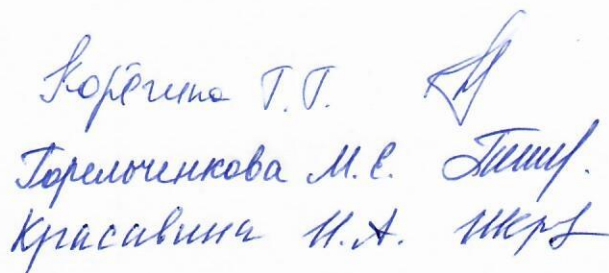 Корёгина Т.Т.
Горельченкова М.Е.
Красавина И.А.